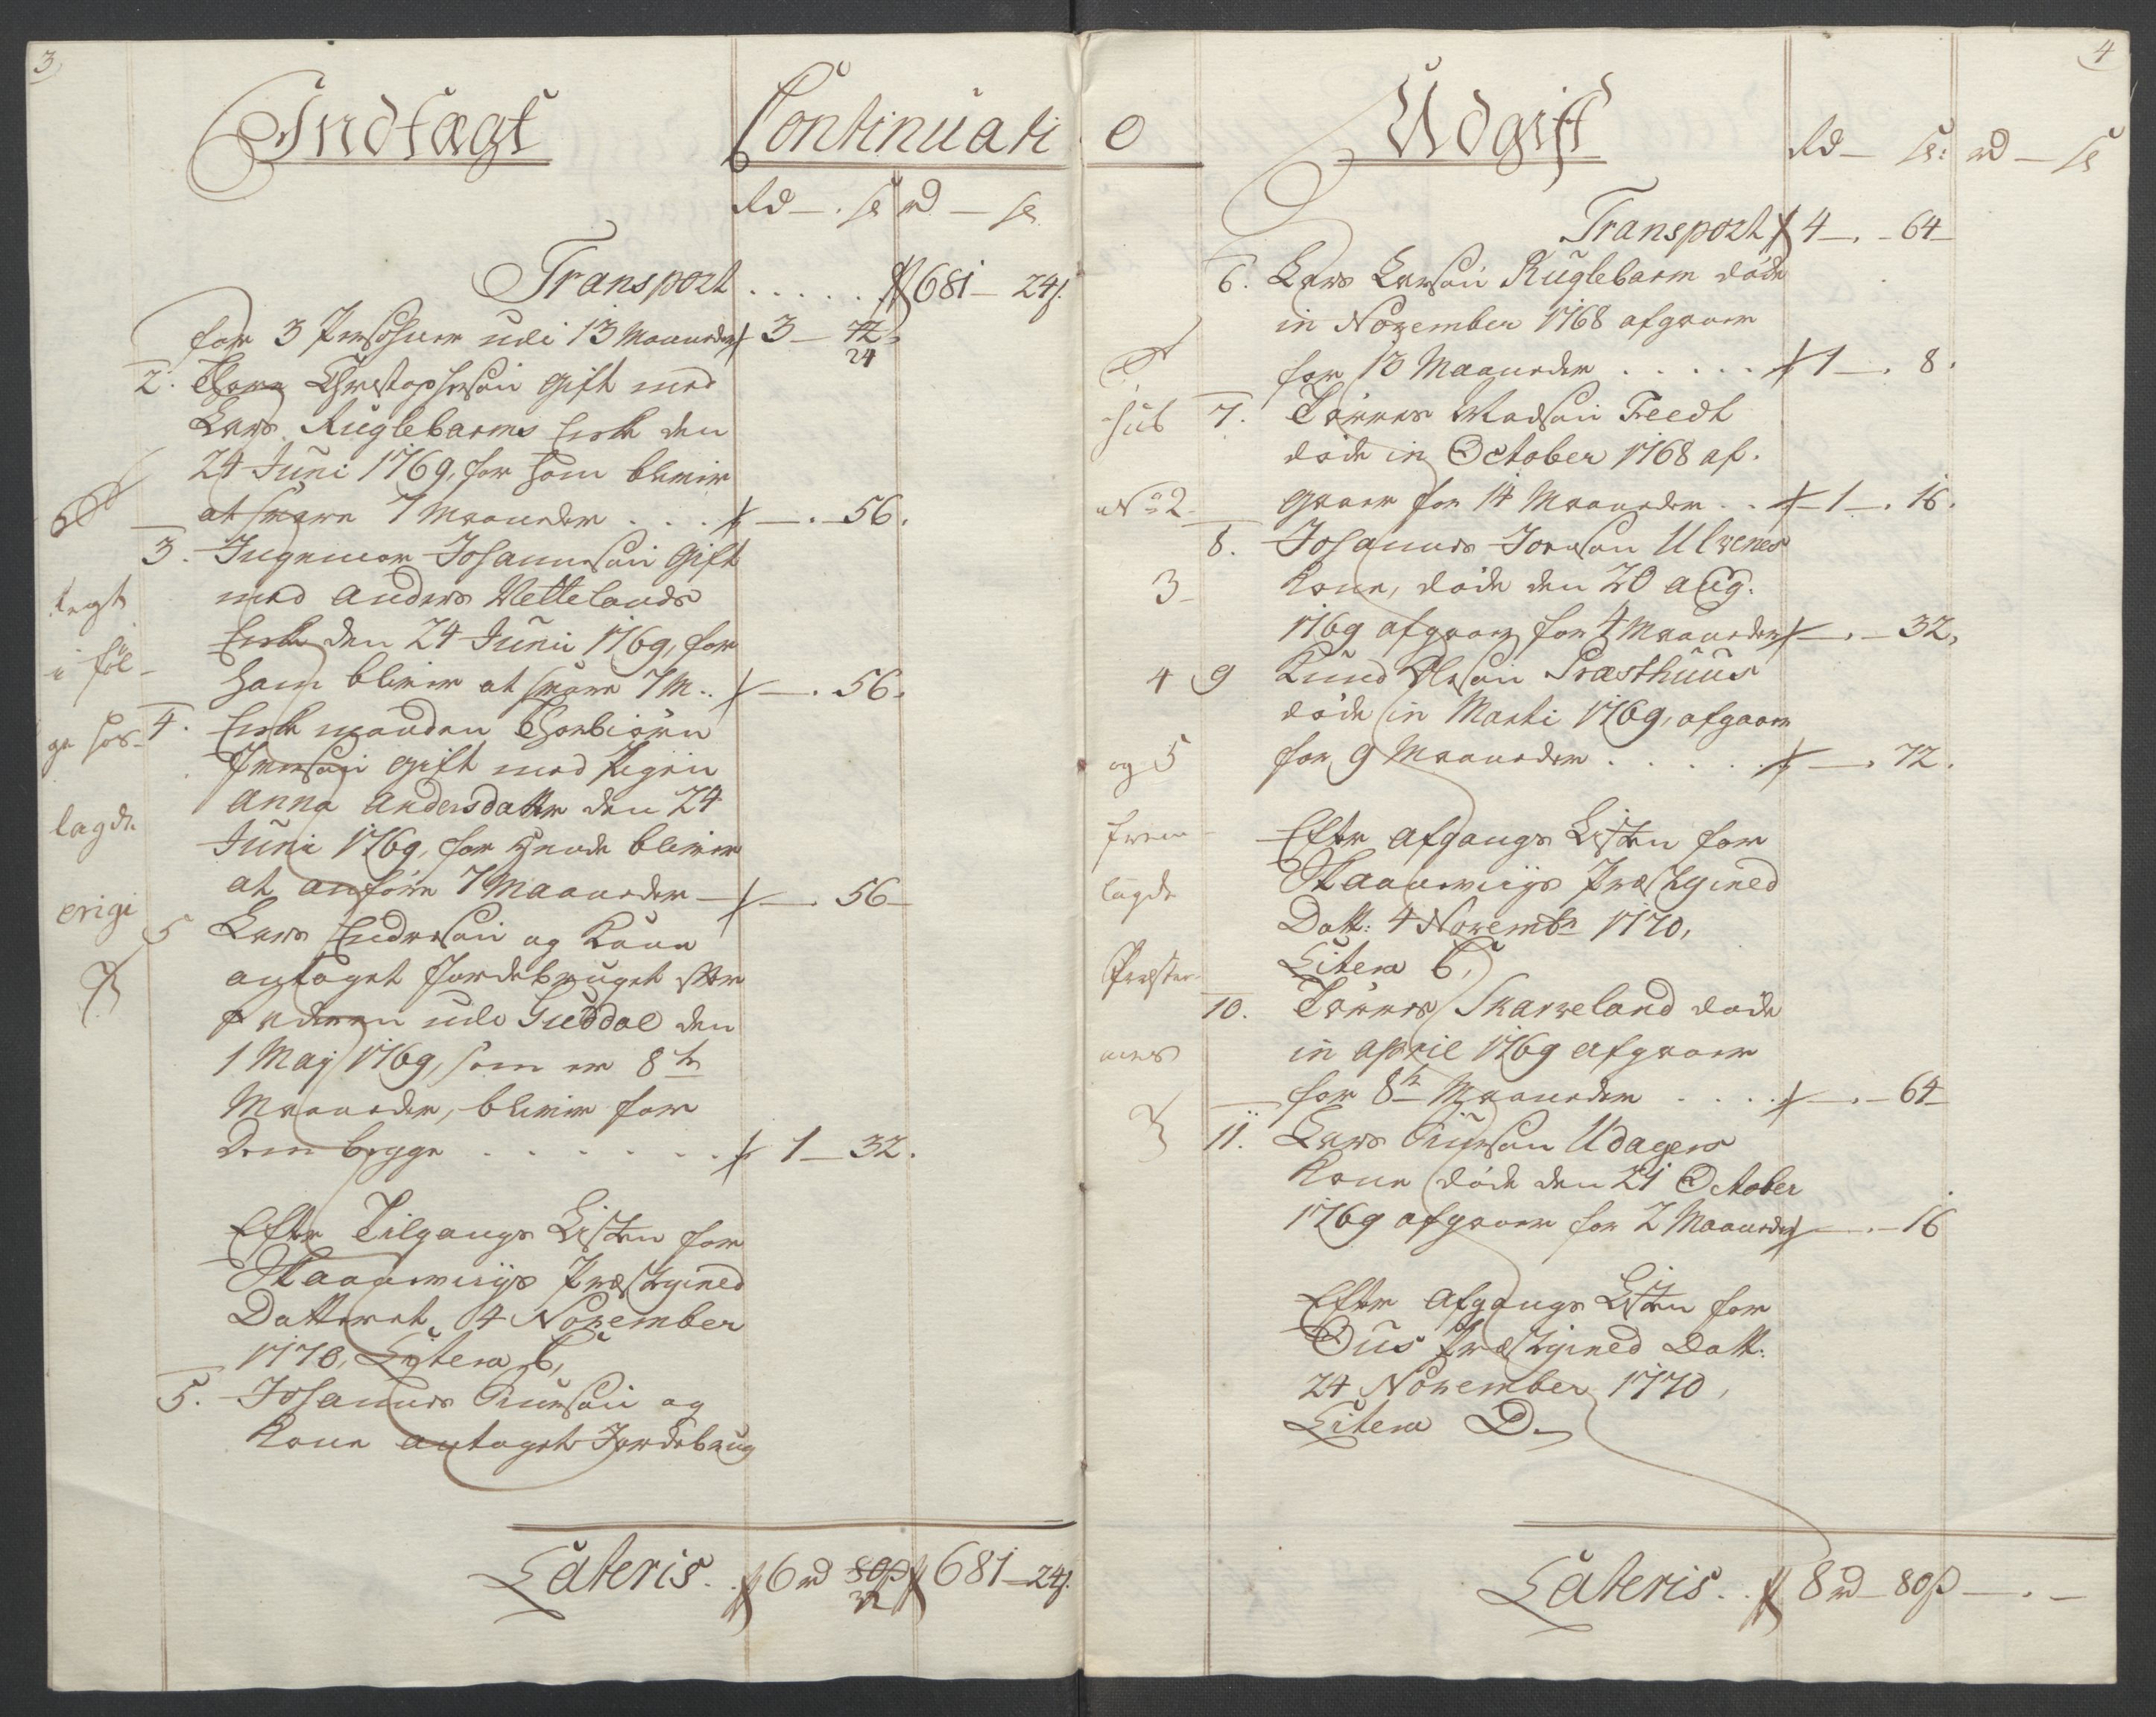 3
Indtægt
Continuati
Rd — . s rd — s
Transport . . . . . 681 — 24 s.
for 3 Persohner udi 13 Maaneder 3 — 72
24
2. Christophersøn gift med
Lars Kuglebarms Encke den
24 Juni 1769, for ham bliver
at svare 7 Maaneder . . . — . 56.
3. Ingemor Johannesøn gift
med Anders Vettelands
Encke den 24 Junii 1769, for
ham bliver at svare 7 M.. — . 56.
4. Enckemanden Thorbiørn
Iversøn gift med Pigen
Anna Andersdatter den 24
Juni 1769, for hende bliver
at anføre 7 Maaneder — . 56
5 Lars Endresøn og Kone
antaget Jordebruget efter
Faderen udi Guddal den
1 Maj 1769, som er 8te
Maaneder, bliver for
dem begge . . . . . . 1 — 32.
Efter Tilgangs Listen for
Præstegield
Datteret 4 November
1770, Litera C,
5. Johannes Siursøn og
Kone antaget Jordebrug
tegt
i føl-
ge hos-
lagde
origi
Lateris. 6 rd 80 s 681 — 24 s.
32
4
o
Udgift
Rd — s: rd — s
Transport 4 — . — 64
6. Lars Larsøn Kuglebarm døde
in November 1768 afgaaer
for 13 Maaneder . . . . . 1 — . 8.
7. Tørres Madsøn Treedt
døde in October 1768 af-
gaaer for 14 Maaneder . . 1 — . 16.
8. Johannes Joensøn Ulvenes
Kone, døde den 20 Aug:
1769 afgaaer for 4 Maaneder — . — 32,
9 Knud Olesøn Præsthuus
døde in Marti 1769, afgaaer
for 9 Maaneder . . . . . — . 72.
Efter Afgangs Listen for
Præstegield
Datt: 4 Novembr 1770,
Litera C,
10. Tørres Skarveland døde
in April 1769 afgaaer
for 8te Maaneder . . . . — . — 64
11. Lars Siursøn Udagers
Kone døde den 21 October
1769 afgaaer for 2 Maaneder — . — 16
Efter Afgangs Listen for
Ous Præstegield Datt:
24 November 1770,
Litera D.
Sub
No 2
3
4
og 5
frem-
lagde
Præster-
nes
Lateris. . 8 rd — 80 s — . —